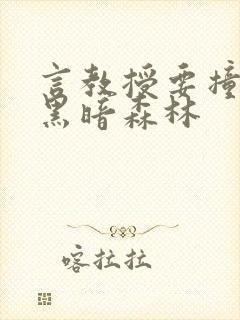 言教授要撞
黑暗森林
喀拉拉